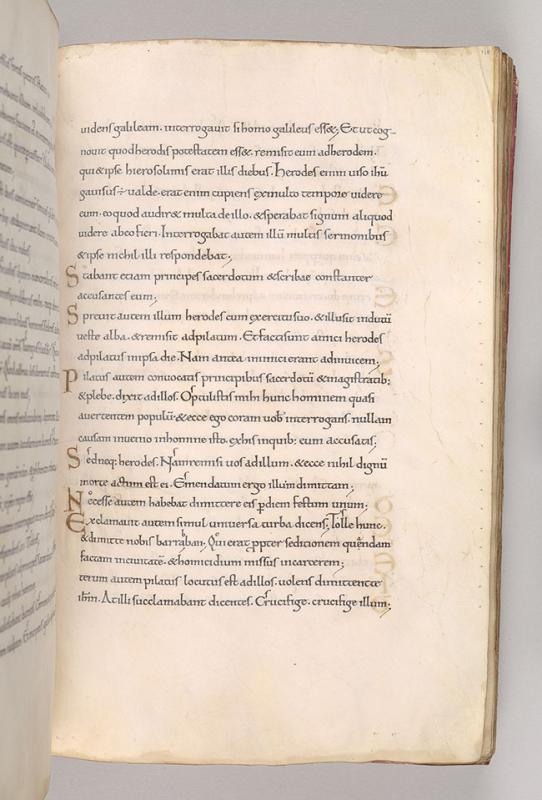 uidens galileam. interrogauit si homo galileus ess&; Et ut cog-
nouit quod herodis potestatem ess&. remisit eum ad herodem.
qui & ipse hierosolimis erat illis diebus. Herodes enim uiso ihu
gauisus ÷ ualde. erat enim cupiens ex multo tempore uidere
eum. eo quod audir& multa de illo. & sperabat signum aliquod
uidere ab eo fieri. Interrogabat autem illū multis sermonibus
& ipse nichil illi respondebat;
Stabant etiam principes sacerdotum & scribae constanter
accusantes eum;
Spreuit autem illum herodes cum exercitu suo. & illusit indutū
ueste alba. & remisit ad pilatum. Et facti sunt amici herodes
ad pilatus in ipsa die. Nam antea inimici erant ad inuicem;
Pilatus autem conuocatis principibus sacerdotū & magistratib;
& plebe. dixit ad illos. Optulistis mihi hunc hominem quasi
auertentem populū. & ecce ego coram uob interrogans. nullam
causam inuenio in homine isto. ex his in quib; eum accusatis;
Sed neq; herodes. Nam remisi uos ad illum. & ecce nihil dignū
morte actum est ei. Emendatum ergo illum dimittam;
Necesse autem habebat dimittere eis p diem festum unum;
Exclamauit autem simul uniuersa turba dicens; Tolle hunc.
& dimitte nobis barrabban; Qui erat propter seditionem quendam
factam in ciuitate. & homicidium missus in carcerem;
terum autem pilatus locutus est ad illos. uolens dimittente
ihm. At illi succlamabant dicentes. Crucifige. crucifige illum;